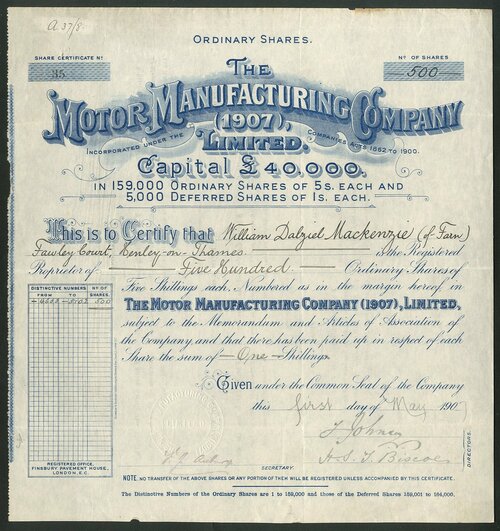 A 37/8.
ORDINARY SHARES.
SHARE CERTIFICATE Nº
35
Nº OF SHARES
500
THE
MOTOR MANUFACTURING COMPANY
(1907),
LIMITED.
INCORPORATED UNDER THE COMPANIES ACTS 1862 TO 1900.
Capital £40,000.
IN 159,000 ORDINARY SHARES OF 5S. EACH AND
5,000 DEFERRED SHARES OF 1S. EACH.
This is to Certify that William Dalziel Mackenzie (of Farn)
Fawley Court, Henley-on-Thames. is the Registered
Proprietor of Five Hundred Ordinary Shares of
Five Shillings each, Numbered as in the margin hereof in
THE MOTOR MANUFACTURING COMPANY (1907), LIMITED,
subject to the Memorandum and Articles of Association of
the Company and that there has been paid up in respect of each
Share the sum of One Shillings
DISTINCTIVE NUMBERS Nº OF
FROM TO SHARES.
500
Given under the Common Seal of the Company
this first day of May 1907
H. S. J. Biscoe
DIRECTORS.
SECRETARY.
REGISTERED OFFICE,
FINSBURY PAVEMENT HOUSE,
LONDON, E.C.
NOTE. NO TRANSFER OF THE ABOVE SHARES OR ANY PORTION OF THEM WILL BE REGISTERED UNLESS ACCOMPANIED BY THIS CERTIFICATE.
The Distinctive Numbers of the Ordinary Shares are 1 to 159,000 and those of the Deferred Shares 159,001 to 164,000.